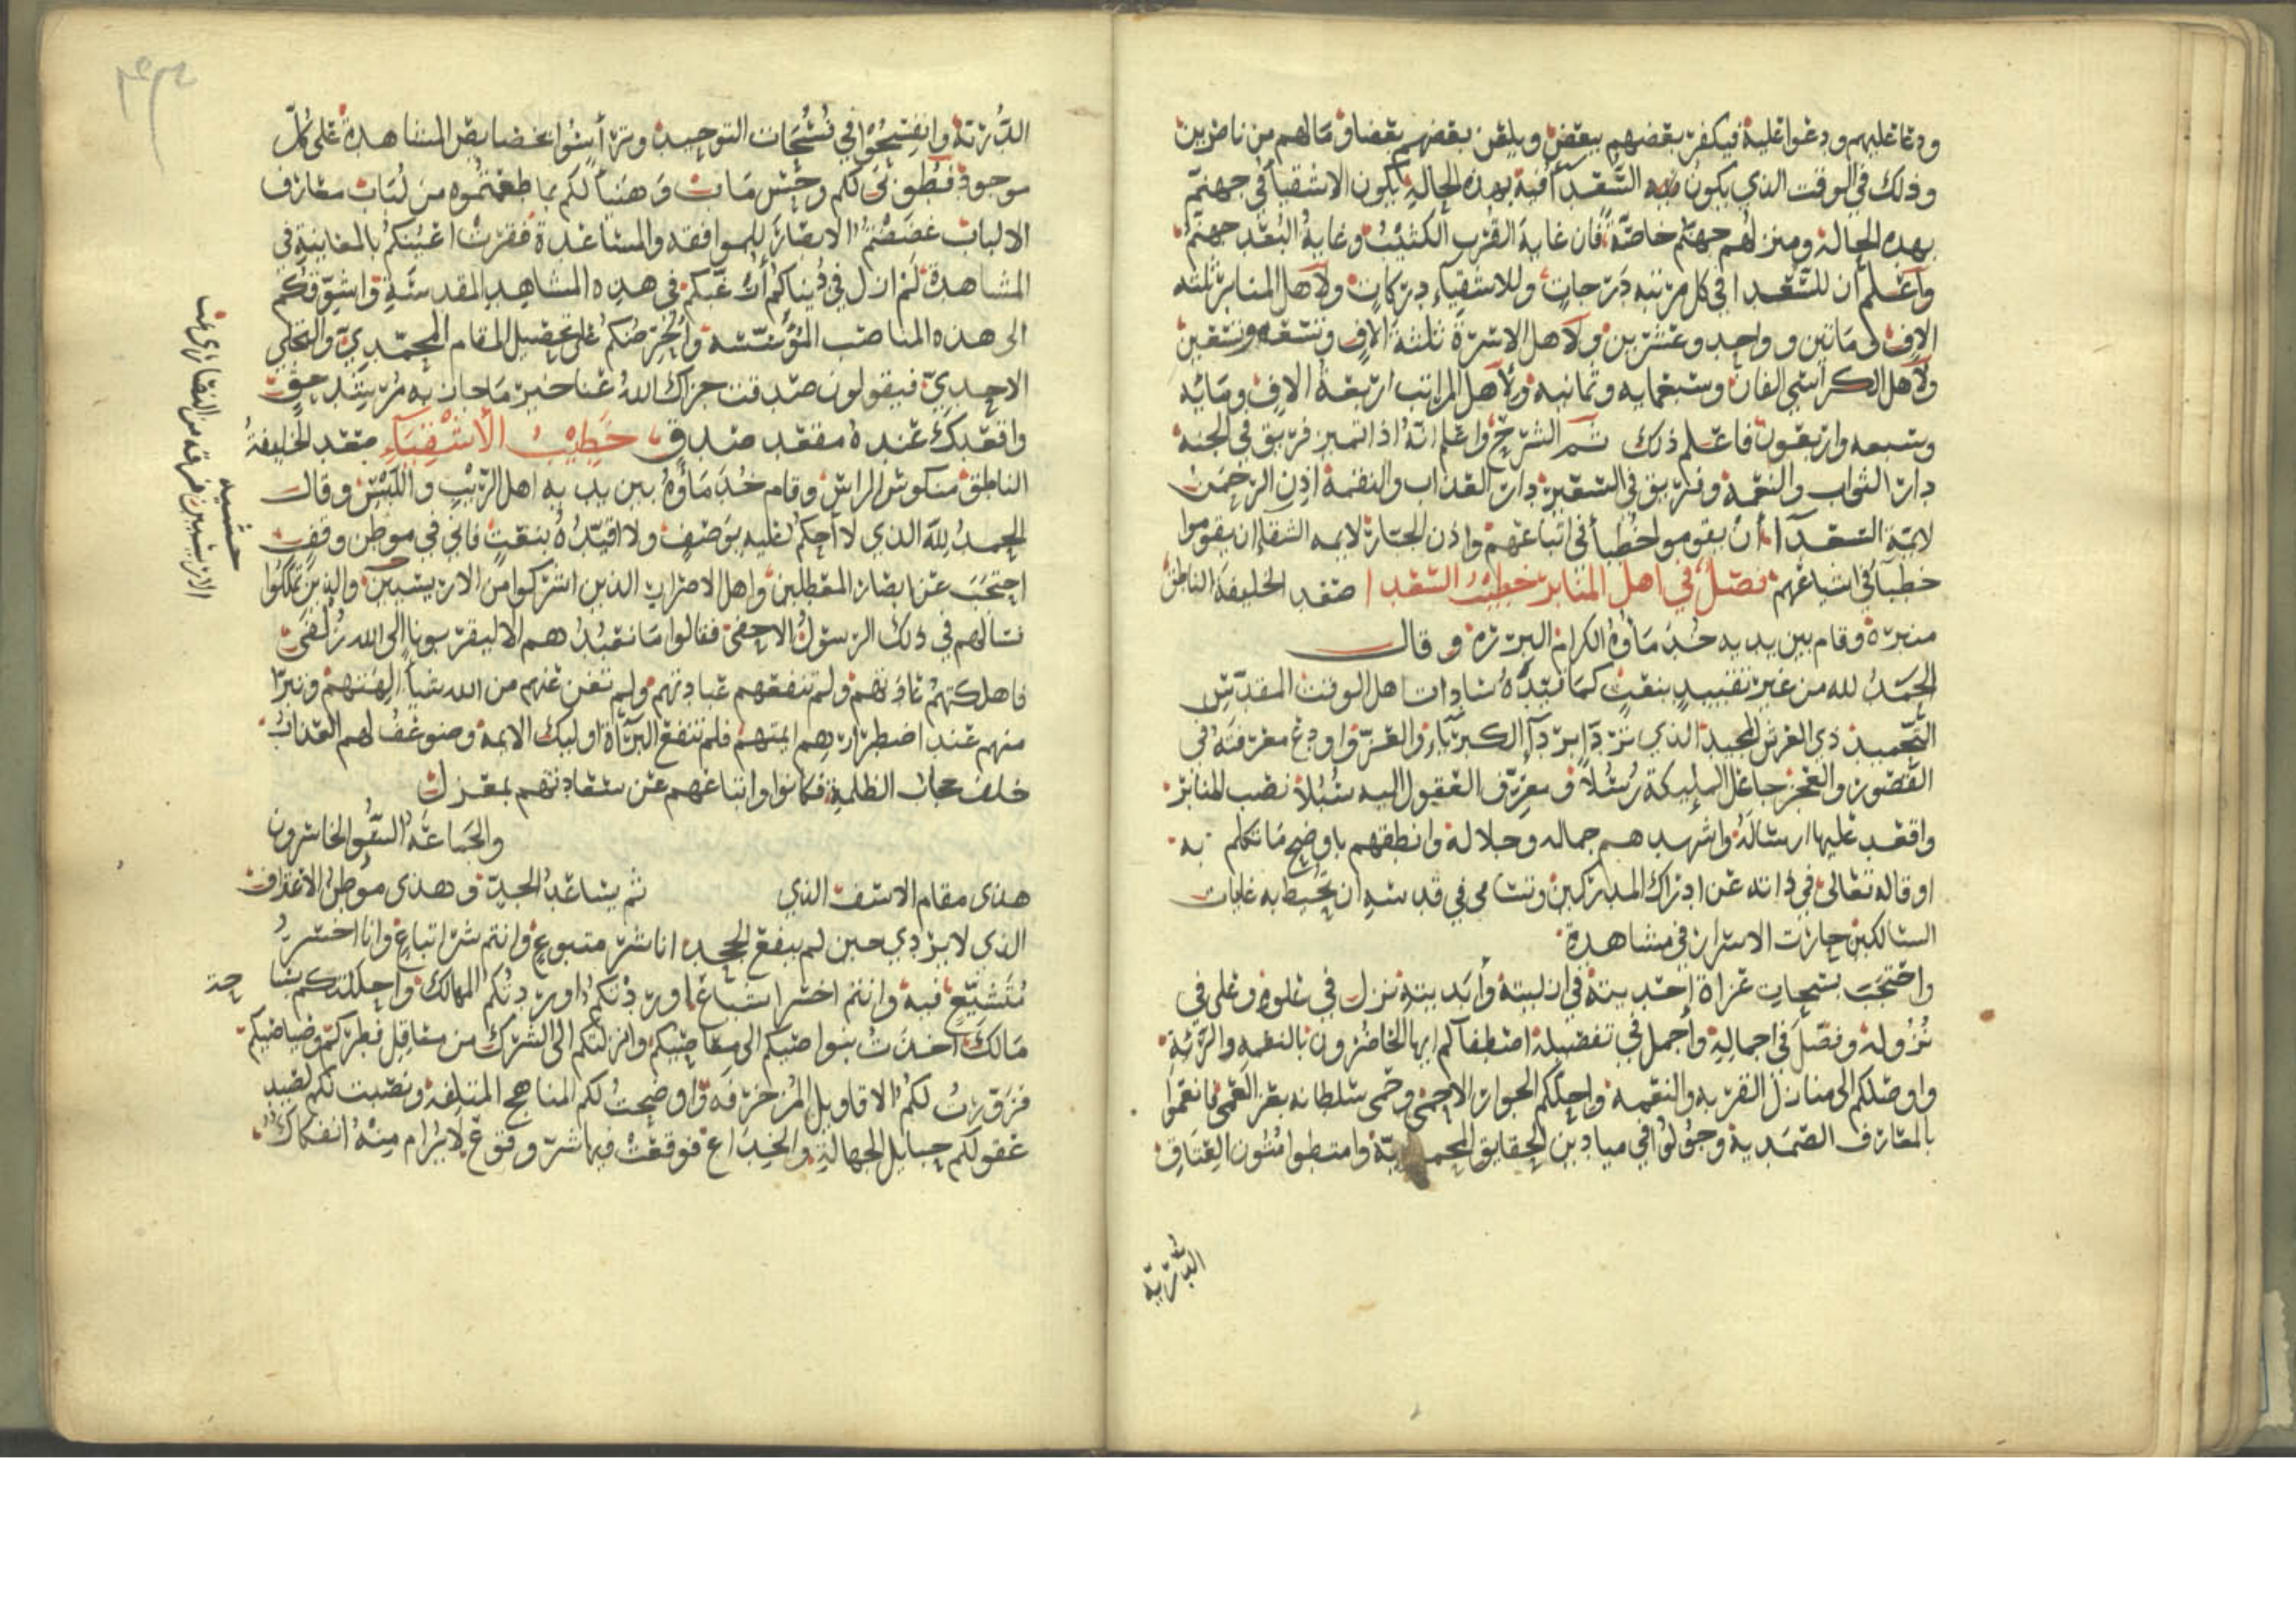 ودعا عليهم ودعوا عليه فيكفر بعضهم ببعض ويلعن بعضهم بعضا وما لهم من ناصرين
وذلك في الوقت الذي يكون فيه السعدآ فيه بهذه الحالة يكون الاشقيآ في جهنم
بهذه الحالة ومنزلهم جهنم خاصة فان غاية القرب الكثيب وغاية البعد جهنم
وآعلم أن للسعدا في كل مرتبه درجات وللاشقياء دركات ولاهل المنابر ثلثه
الاف مأتين وواحد وعشرين ولاهل الاسرة ثلثة الاف وتسعه وتسعين
ولاهل الكراسي الفان وسبعمايه وثمانيه ولاهل المراتب اربعة الاف ومايه
وسبعه واربعون فاعلم ذلك ثم الشرح واعلم انه اذا تميز فريق في الجنه
دار الثواب والنعمة وفريق في السعير دار العذاب والنقمة اذن الرحمن
لايمة السعدآ أن يقوموا خطبأ في اتباعهم واذن الجبار لايمه الشقا ان يقوموا
خطبآ في اشياعهم فصل في اهل المنابر خطيب السعدا صعد الخليفة الناطق
منبره وقام بين يديه خدمأوه الكرام البررة وقال
الحمد لله من غير تقييد بنعت كما قيده سادات اهل الوقت المقدس
التحميد ذي العرش المجيد الذي تردا بردآ الكبرياء والعز واودع معرفته في
القصور والعجز جاعل المليكة رسلا ومعرف العقول اليه سبلا نصب المنابر
واقعد عليها ارساله واشهدهم جماله وجلاله وانطقهم باوضح ما تكلم به
او قاله تعالى في ذاته عن ادراك المدركين وتسامى في قدسه ان يحيط به غايات
السالكين حارت الاسرار في مشاهدة
واحتجب بسبحات عزاة احديته في ازليته وأبديته نزل في علوه وعلى في
نزوله وفصل في اجماله وأجمل في تفصيله اصطفاكم ايها الحاضرون بالنعمه والرؤية
واوصلكم الى منازل القربه والنعمه واحلكم الجوار الاحمى وحمى سلطانه بعز العمى فانعموا
بالمعارف الصمديه وجولوا في ميادين الحقايق المحمدية وامتطوا متون العتاق
البدرية
الدرية وانفسحوا في فسحات التوحيد وترأسوا بخصايص المشاهدة على كل
موجود فطوبى لكم وحسن مآب وهنيا لكم بما طعمتموه من لباب معارف
الالباب غضضتم الابصار للموافقه والمساعدة فقرت اعينكم بالمعاينة في
المشاهدة لم ازل في دنياكم أرغبكم في هذه المشاهد المقدسة واشوقكم
الى هذه المناصب المؤسسة واحرضكم على تحصيل المقام المحمدي والتجلي
الاحدي فيقولون صدقت جزاك الله عنا خير ما جازى به مرشد حق
واقعدك عنده مقعد صدق خطيب الأشقياء صعد الخليفة
الناطق منكوس الراس وقام خدمأوه بين يديه اهل الريب واللبس وقال
الحمد لله الذي لا أحكم عليه بوصف ولا اقيده بنعت فاني في موطن وقف
احتجب عن ابصار المعطلين واهل الاضراب الذين اشركوا من الاريسيين والذين تملكوا
فسألهم في ذلك الرسول الاحفى فقالوا ما نعبدهم الا ليقربونا الى الله زلفى
فاهلكتهم عادتهم ولم تنفعهم عبادتهم ولم تغن عنهم من الله شيا الهتهم وتبرا
منهم عند اضطرارهم ايمتهم فلم تنفع البرآة اوليك الايمه وضوعف لهم العذاب
خلف حجاب الظلمة فكانوا واتباعهم عن سعادتهم بمعزل
والجماعة البقوا الخاسرون
هذى مقام الاسف الذي ثم يساعد الجد وهذى موطن الاعتراف
الذي لا يردي حين لم ينفع الجحد انا شر متبوع وانتم شر اتباع وانا اخسر
متشيع فيه وانتم اخسر اشياعا وردتكم اوردتكم المهالك واحللتكم بساحة
مالك اخذت بنواصيكم الى معاصيكم وانزلتكم الى الشرك من معاقل فطركم وصياصيكم
فزورت لكم الاقاويل المزخرفه واوضحت لكم المناهج المتلفة ونصبت لكم لصيد
عقولكم حبايل الجهالة والخداع فوقعت فيها شر وقوع لا يرام منه انفكاك
حشيه
الاريسيين فرقه من النصارى